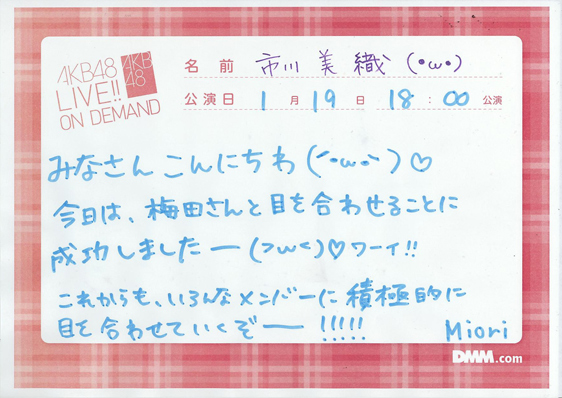 AKB48
LIVE!!
ON DEMAND
AKB
48
名前 市川美織 (•ω•)
公演日 1月19日 18:00公演
みなさんこんにちわ(´•ω•`)♡
今日は、梅田さんと目を合わせることに
成功しましたー(>ω<)♡ワーイ!!
これからも、いろんなメンバーに積極的に
目を合わせていくぞー!!!!!
Miori
DMM.com